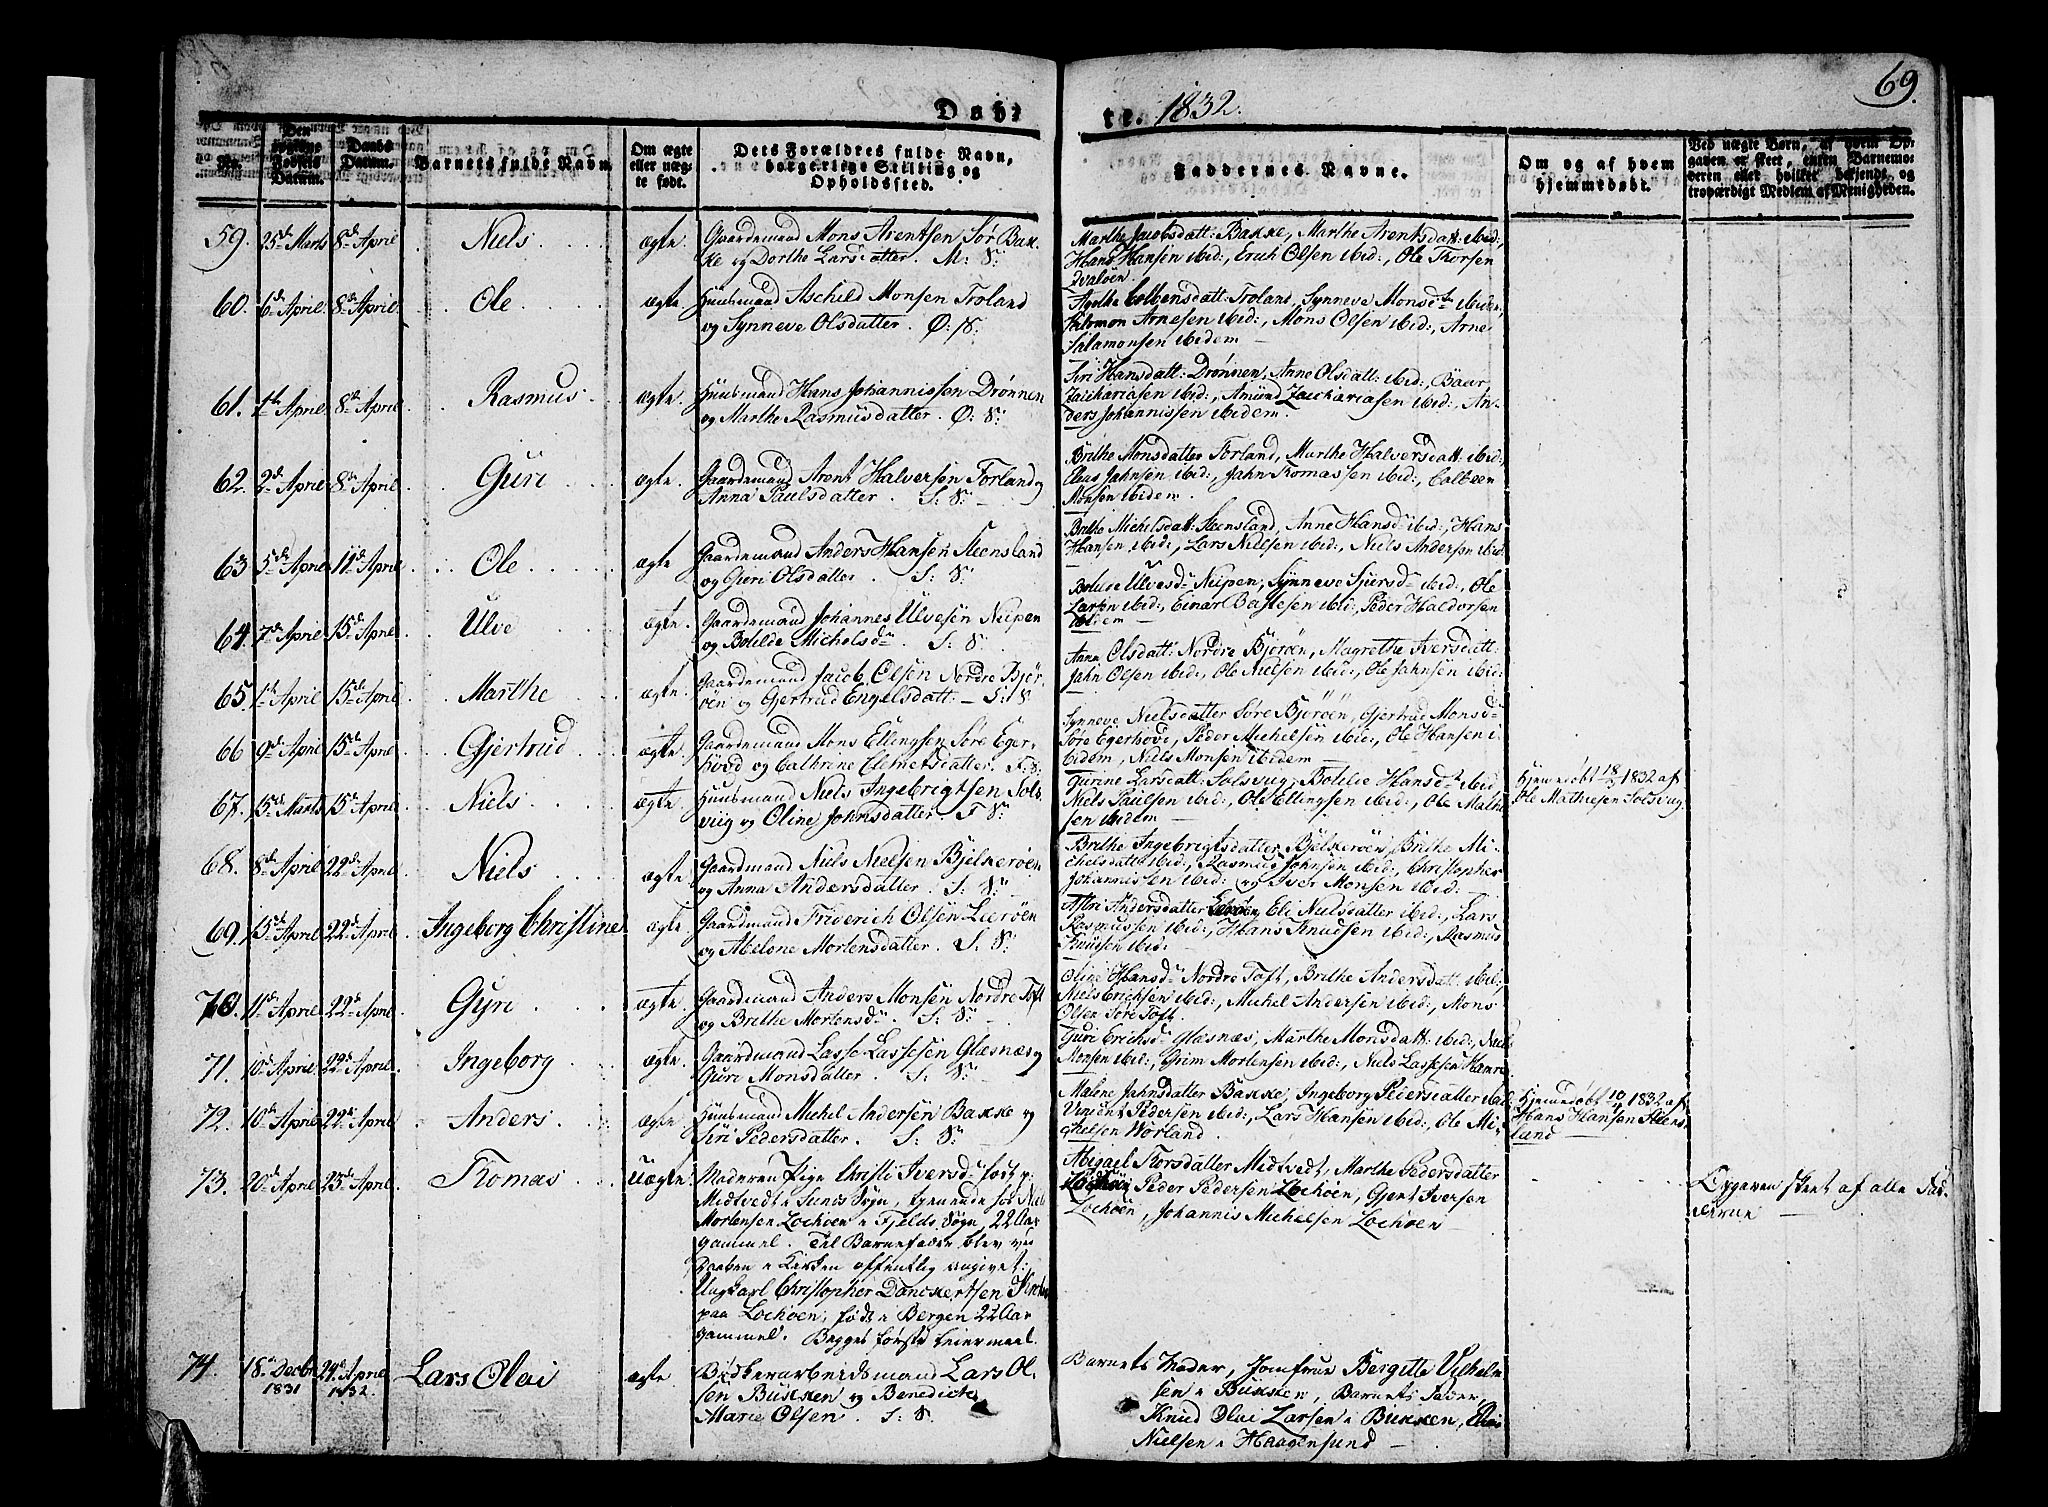 69.
Døbte. 1832.
No.
Den
Fødsels
Datum.
Daabs
Datum.
Barnets fulde Navn
Om ægte
eller uæg-
te født.
Dets Forældres fulde Navn,
borgerlige Stilling og
Opholdssted.
Faddernes Navne.
Om og af hvem
hjemmedøbt.
Ved uægte Børn, af hvem Op-
gaven er skeet, enten Barnemo-
deren eller hvilket bekjendt og
troværdigt Medlem af Menigheden.
59. 25de Marts 8de April Niels ægte. Gaardemand Mons Arentsen Sør Bak-
ke og Dorthe Larsdatter. M: S:
Marthe Jacobsdatt: Bakke, Marthe Arentsdatt: ibid:,
Hans Hansen ibid:, Erich Olsen ibid:, Ole Thorsen
60. 6te April 8de April Ole ægte Huusmand Aschild Monsen Troland
og Synneve Olsdatter. Ø: S:
Troland, Synneve Monsd: ibidem,
Salomon Arnesen ibid:, Mons Olsen ibid:, Arne
Salamonsen ibidem
61. 1te April 8de April Rasmus ægte Huusmand Hans Johannissen Drønnen
og Marthe Rasmusdatter. Ø: S:
Siri Hansdatt: Drønnen, Anne Olsdatt: ibid:, Baar
Zachariasen ibid:, Amund Zachariasen ibid:, An-
ders Johannissen ibidem.
62. 2den April 8de April Guri ægte. Gaardemand Arent Halversen Forland og
Anna Paulsdatter. S: S:
Brithe Monsdatter Forland, Marthe Halversdatt: ibid:,
Claus Jahnsen ibid:, Jahn Thomassen ibid:, Colbeen
Monsen ibidem.
63 5te April 11te April Ole ægte Gaardemand Anders Hansen Steensland
og Guri Olsdatter. S: S:
Brithe Michelsdatt: Steensland, Anne Hansd: ibid:, Hans
Hansen ibid:, Lars Nielsen ibid:, Niels Andersen ibid:
64. 7de April 15de April Ulve ægte. Gaardemand Johannes Ulvesen Neipen
og Botilde Michelsdr. S: S:
Ulvesdr Neipen, Synneve Sjursdr ibid:, Ole
Larsen ibid:, Einar Bastesen ibid:, Peder Haldorsen
ibidem
65. 1te April 15de April Marthe ægte Gaardemand Jacob Olsen Nordre Bjør-
øen og Gjertrud Engelsdatt. S: S
Anna Olsdatt: Nordre Bjorøen, Magrethe Iversdatt:
Jahn Olsen ibid:, Ole Nielsen ibid:, Ole Jahnsen ibid:
66 9de April 15de April Gjertrud ægte. Gaardemand Mons Ellingsen Søre Eger-
hovd og Cathrine Clemetsdatter. F: S:
Synneve Nielsdatter Søre Bjorøen, Gjertrud Monsdr
Søre Egerhovd, Peder Michelsen ibid:, Ole Hansen i-
bidem, Niels Monsen ibidem
67. Marts 15de April Niels ægte Huusmand Niels Ingebrigtsen Sols-
viig og Oline Johnsdatter. F S:
Gurine Larsdatt: Solsvig, Botilde Hansdr ibid
Niels Paulsen ibid:, Ole Ellingsen ibid:, Ole Mathi-
sen ibidem
Hjemmedøbt 18/3 1832 af
Ole Mathiesen Solsvig
68. 8de April 22de April Niels ægte Gaardmand Niels Nielsen Bjelkerøen
og Anna Andersdatter. S: S:
Brithe Ingebrigtsdatter Bjelkerøen, Brithe Mi-
chelsdatt: ibid:, Rasmus Johnsen ibid:, Christopher
Johannissen ibid: og Iver Monsen ibid:
69. 15de April 22de April Ingeborg Christine ægte. Gaardmand Friderich Olsen Lierøen
og Abelone Mortensdatter. S: S:
Astri Andersdatter Eli Nielsdatter ibid:, Lars
Rasmussen ibid:, Hans Knudsen ibid:, Rasmus
Knudsen ibid:
70. 11te April 22de April Gyri ægte. Gaardemand Anders Monsen Nordre Toft
og Brithe Mortensdr. S: S:
Oline Hansdr Nordre Toft, Brithe Andersdatt: ibid:,
Niels Erichsen ibid:, Michel Andersen ibid:, Mons
Olsen Søre Toft.
71. 10de April 22de April Ingeborg ægte Gaardmand Lasse Lassesen Glesnæs og
Guri Monsdatter. S: S:
Guri Erichsd: Glesnæs, Marthe Monsdatt: ibid:,
Monsen ibid:, Grim Mortensen ibid:, Niels Lassesen Hamre
72. 10de April 22de April Anders ægte Huusmand Michel Andersen Bakke og
Siri Pedersdatter. S: S:
Malene Jahnsdatter Bakke, Ingeborg Pedersdatter ibid
Vincent Pedersen ibid:, Lars Hansen ibid:, Ole Mi-
chelsen Worland.
Hjemmedøbt 10/4 1832 af
Hans Hansen Steens-
land
73. 20de April 23de April Thomas Uægte Moderen Pige Christi Iversdr født p:
Midtvedt i Sunds Sogn, tjenende for Niels
Mortensen Lochøen i Fjelds Sogn, 22 Aar
gammel. Til Barnefader blev ved
Daaben i Kirken offentlig angivet:
Ungkarl Christopher Danckertsen
paa Lochøen, født i Bergen 22 Aar
gammel. Begges første Leiermaal.
Abigael Thorsdatter Midtvedt, Marthe Pedersdatter
Lochøen Peder Pedersen Lochøen, Gjert Iversen
Lochøen, Johannis Michelsen Lochøen
Opgaven skeet af alle Fad-
derne
74. 18de Decbr 1831 24de April 1832 Lars Olai ægte Bødkerarbeidsmand Lars Ol-
sen Bukken og Benedicte
Marie Olsen. S: S.
Barnets Moder, Jomfrue Bergitte Vilhelm-
sen i Bukken, Barnets Fader,
Knud Olai Larsen i Bukken,
Nielsen i Haagensund